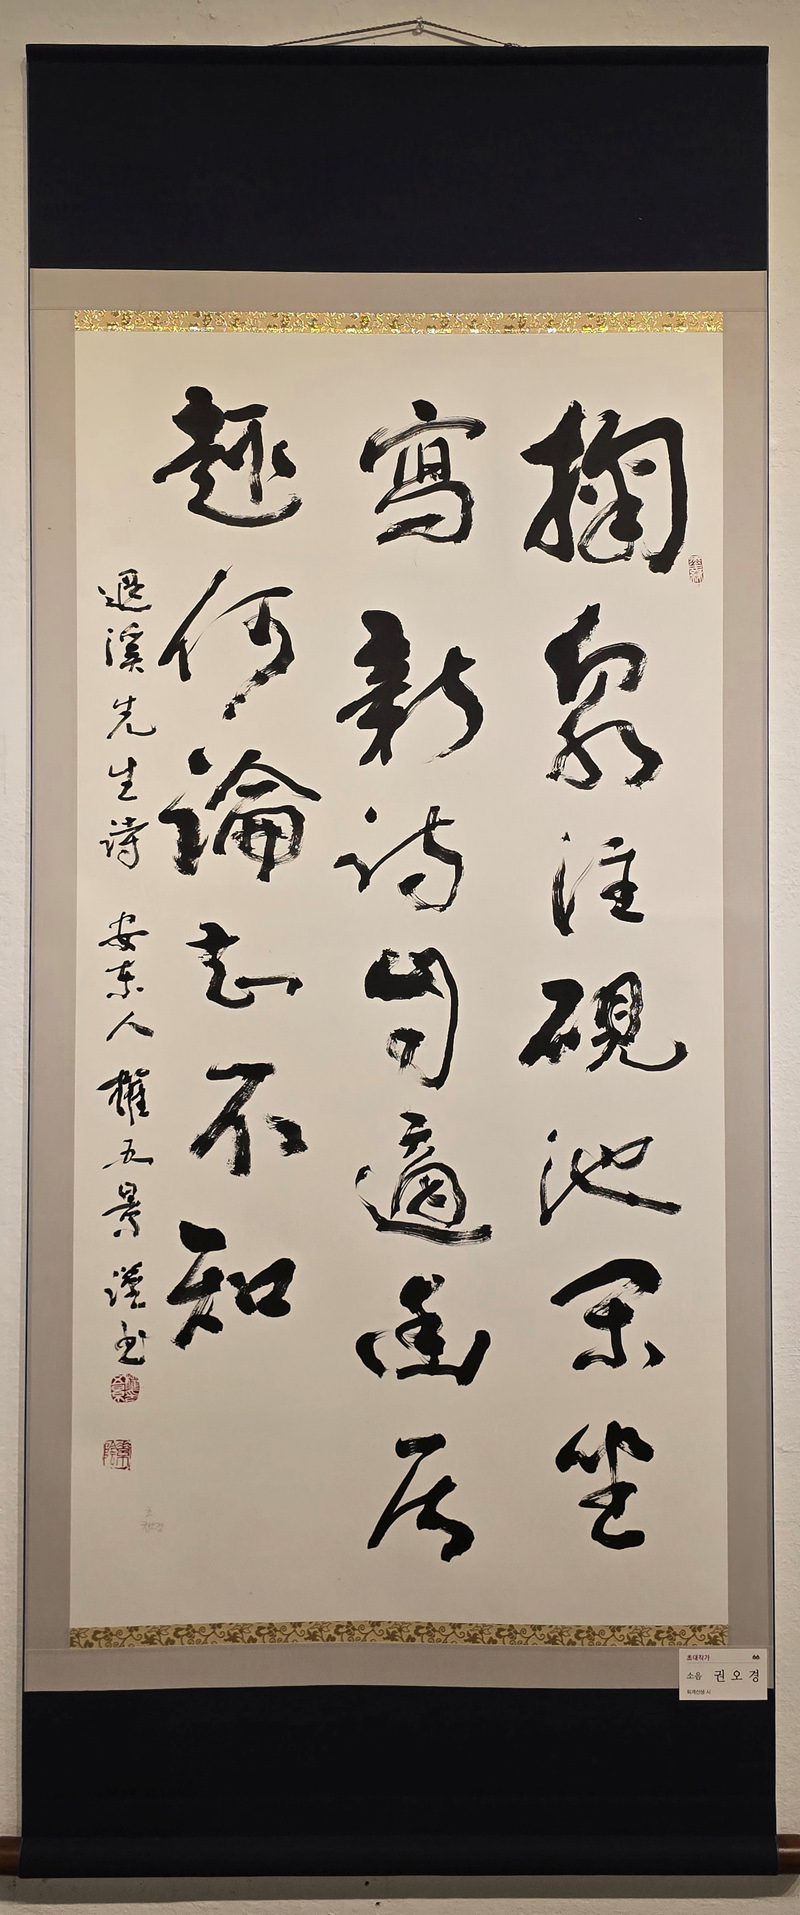 掬泉注硯池閑坐
寫新詩自適幽居
趣何論知不知
退溪先生詩 安東人 權五景 謹書
초대작가
소음 권오경
퇴계선생 시